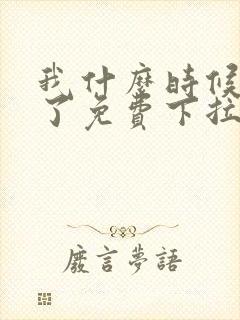 我什麼時候
了免費下拉
廢言夢語